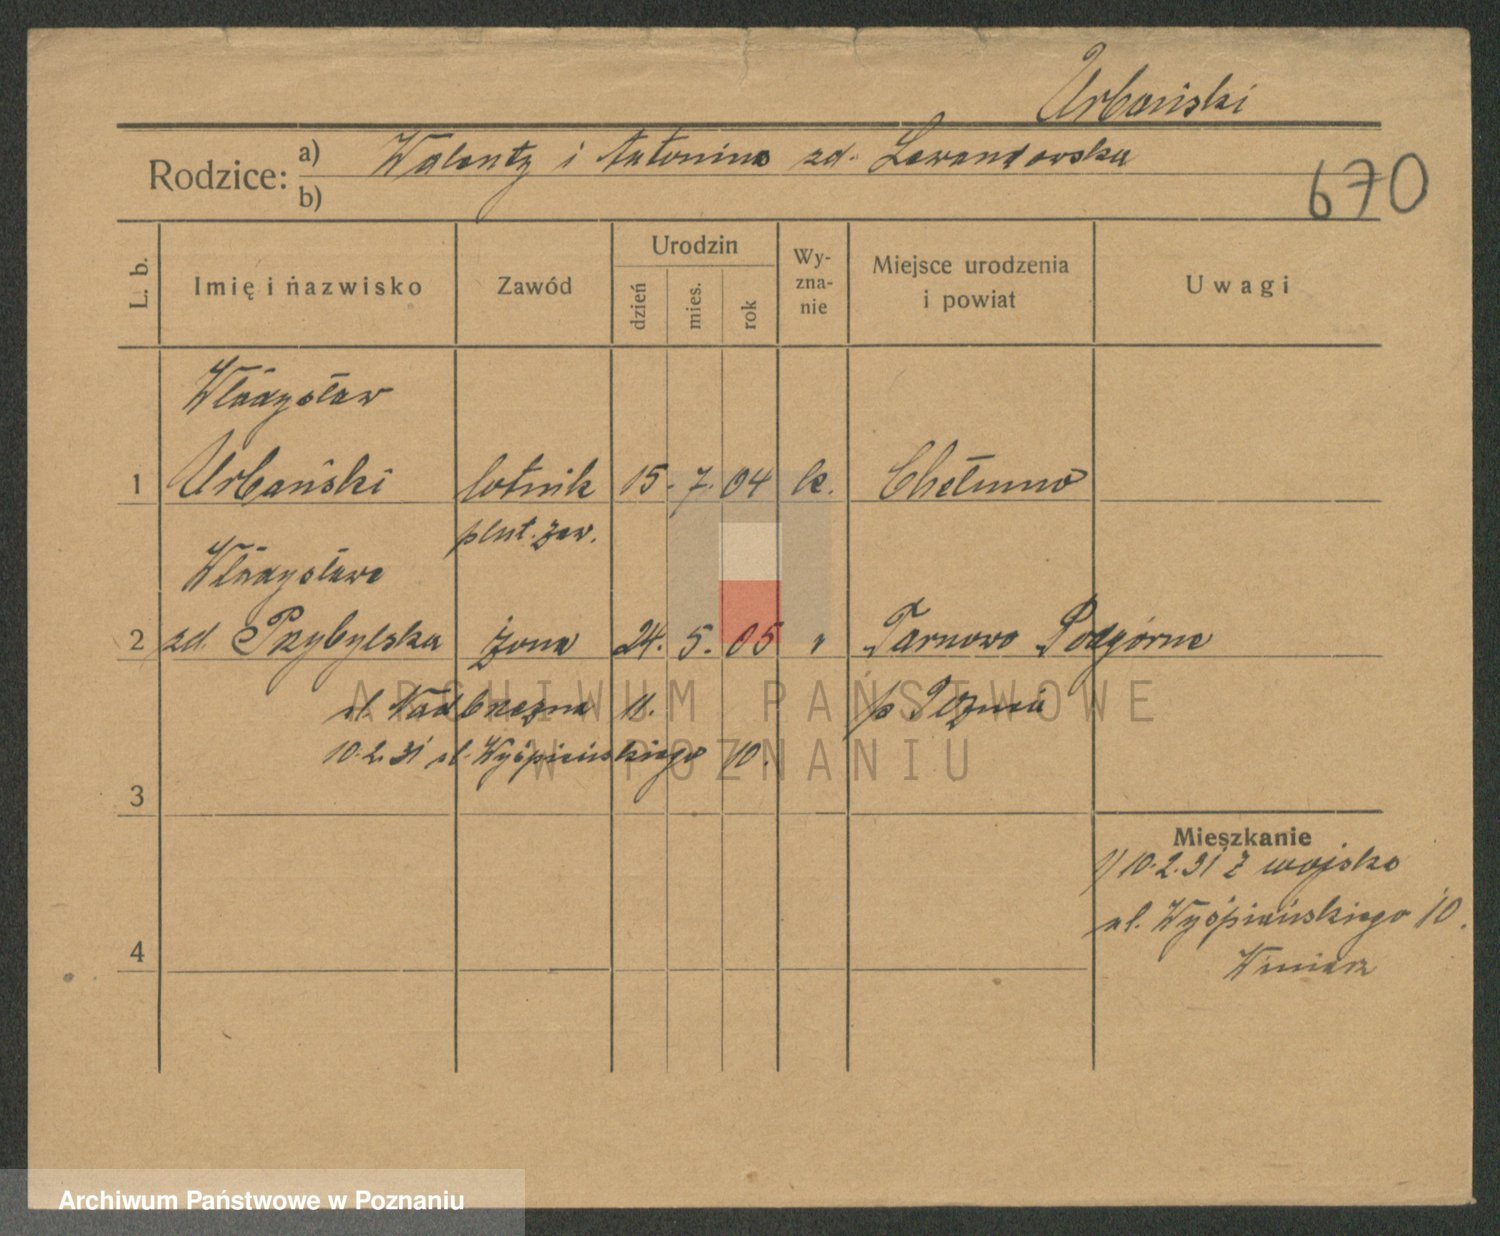 Urbański
Rodzice: a) Walenty i Antonina zd. Lewandowska
b)
670
L. b. Imię i nazwisko Zawód Urodzin dzień mies. rok Wyznanie Miejsce urodzenia i powiat Uwagi
Władysław
1 Urbański lotnik 15. 7. 04 k. Chełmno
plut. zaw.
Władysława
2 zd. Przybylska żona 24. 5. 05 " Tarnowo Podgórne
ul. Nadbrzeżna 11. p. Poznań
10.2.31 ul. Wyśpiańskiego 10.
3
Mieszkanie
1) 10.2.31 z wojska
ul. Wyśpiańskiego 10.
4
ARCHIWUM PAŃSTWOWE
W POZNANIU
Archiwum Państwowe w Poznaniu